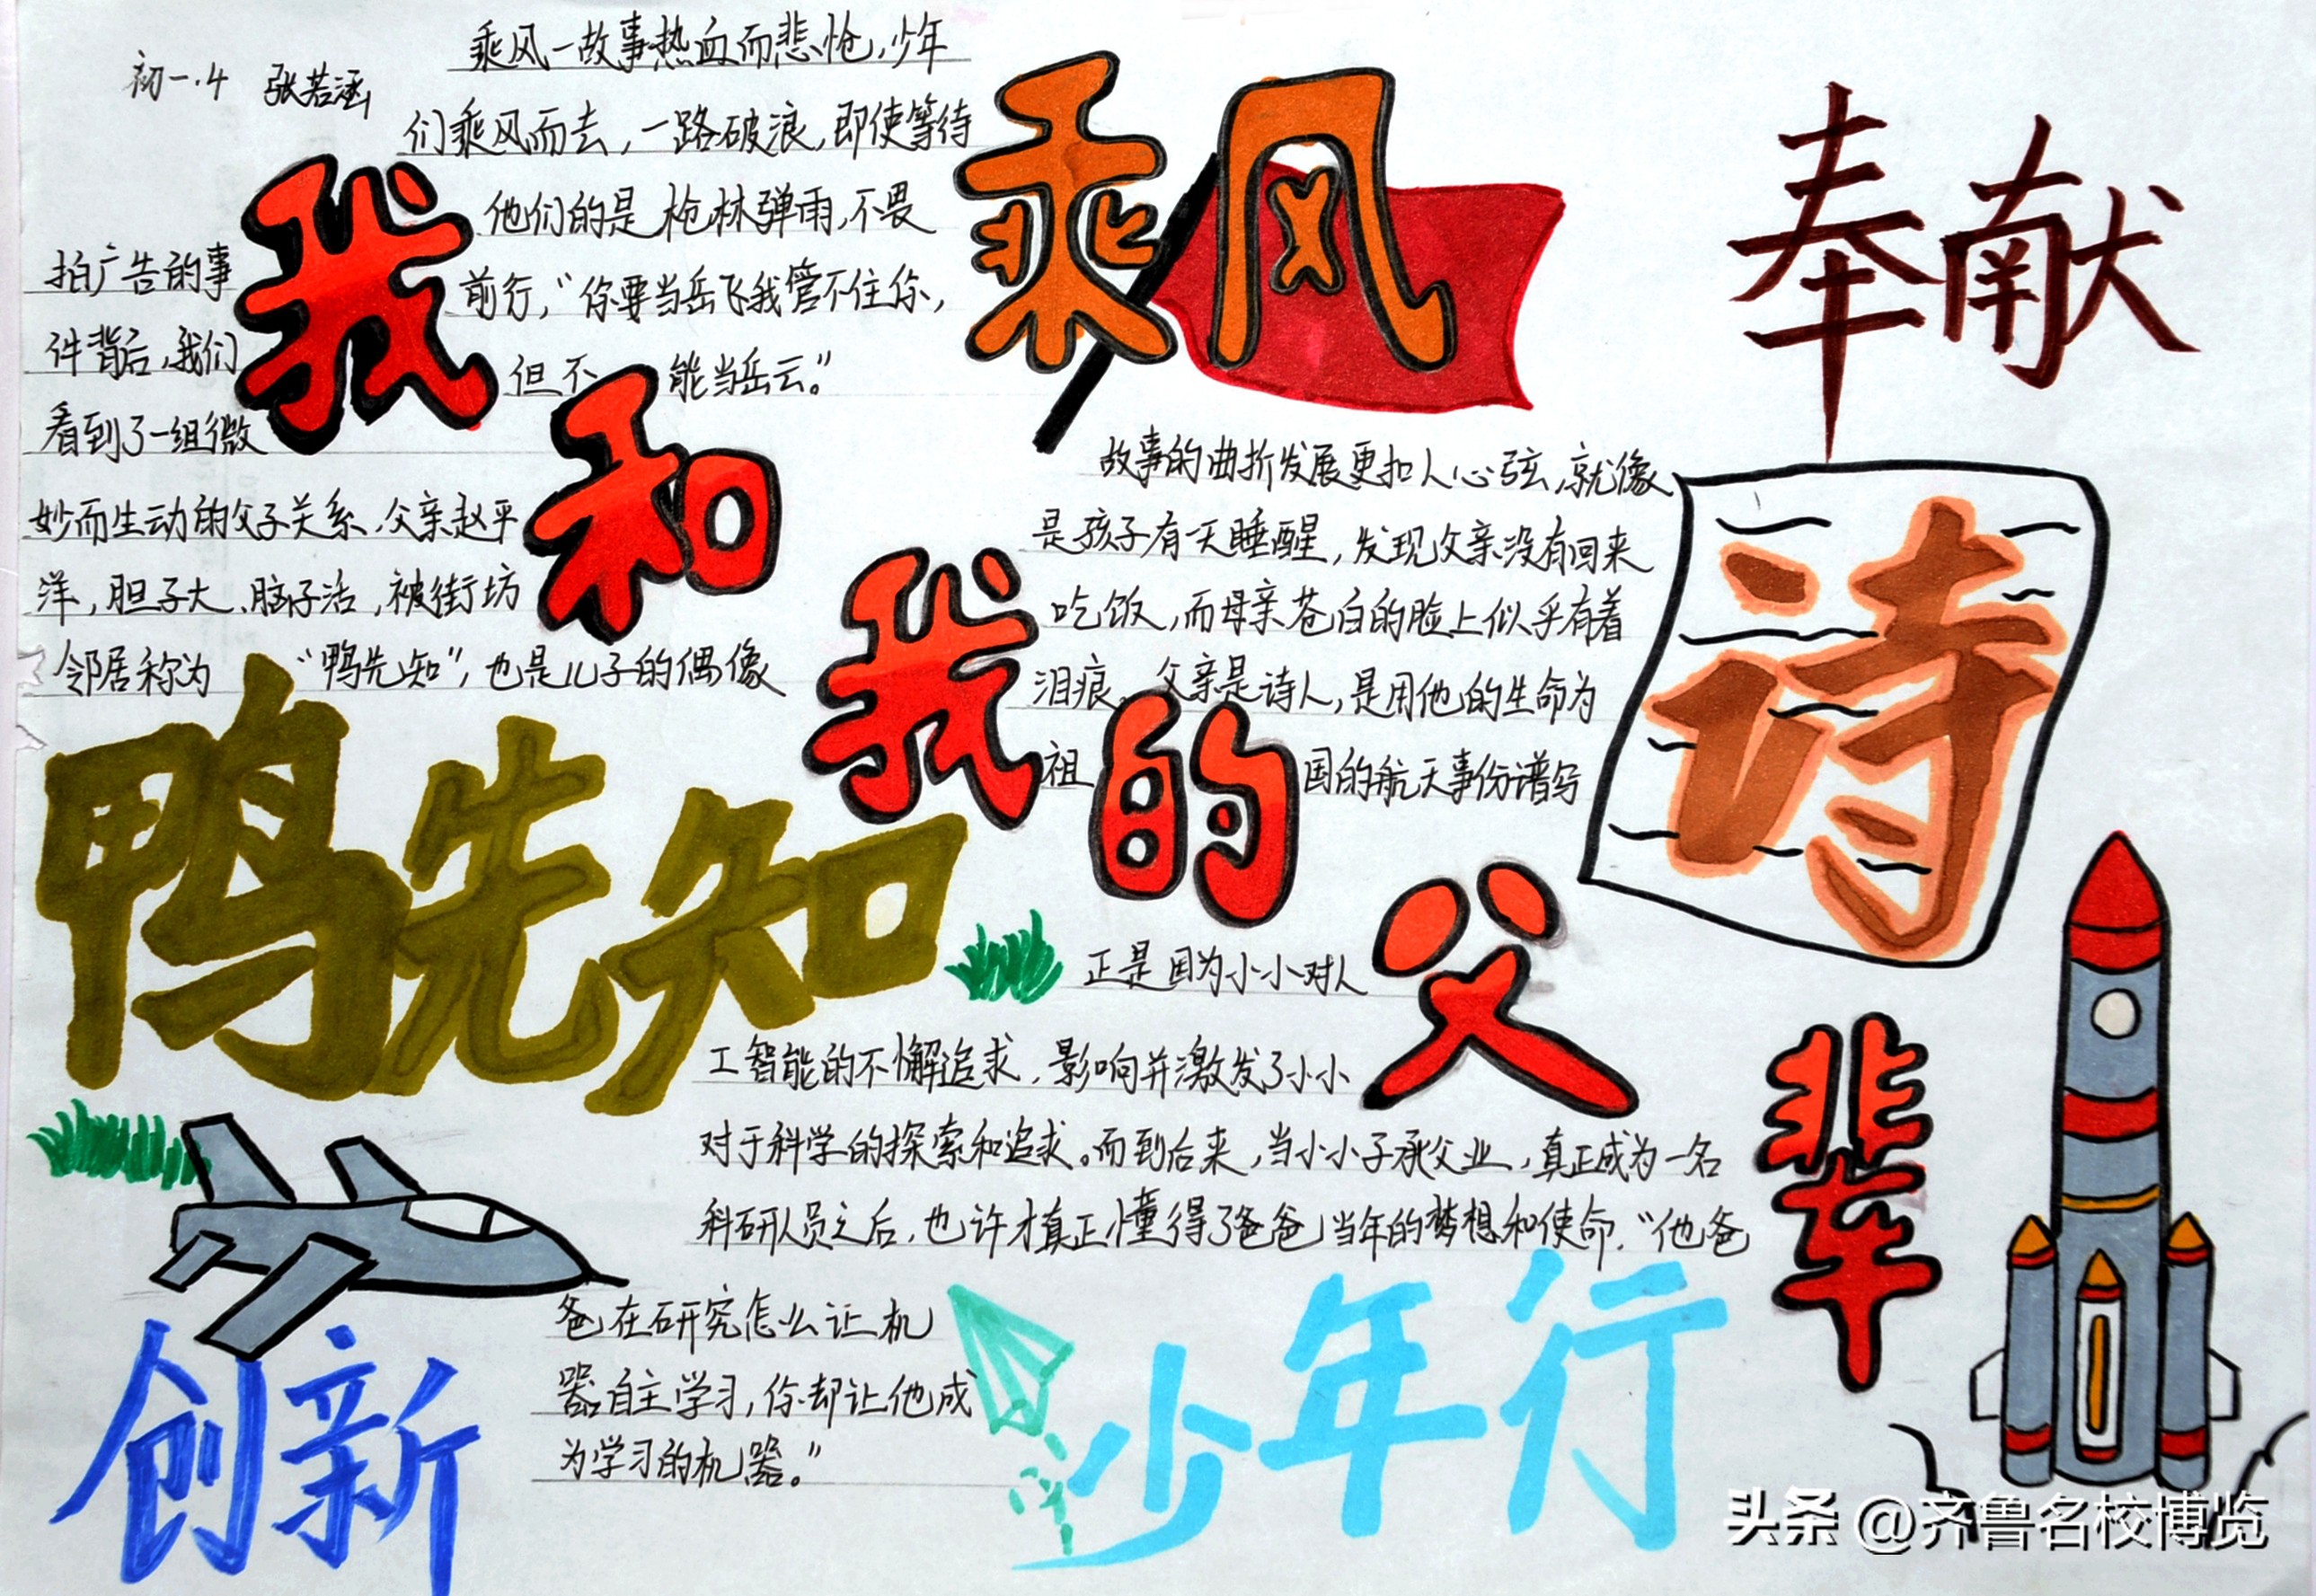 初一.4 张若涵
乘风一故事热血而悲怆,少年
们乘风而去,一路破浪,即使等待
他们的是枪林弹雨,不畏
前行,“你要当岳飞我管不住你,
但不能当岳云。”
乘风
奉献
我和我的父辈
拍广告的事
件背后,我们
看到了一组微
妙而生动的父子关系,父亲赵平
洋,胆子大、脑子活,被街坊
邻居称为“鸭先知”,也是儿子的偶像
鸭先知
故事的曲折发展更扣人心弦,就像
是孩子有一天睡醒,发现父亲没有回来
吃饭,而母亲苍白的脸上似乎有着
泪痕。父亲是诗人,是用他的生命为
祖国的航天事份谱写
诗
正是因为小小对人
工智能的不懈追求,影响并激发了小小
对于科学的探索和追求。而到后来,当小小子承父业,真正成为一名
科研人员之后,也许才真正懂得了爸爸当年的梦想和使命.“他爸
爸在研究怎么让机
器自主学习,你却让他成
为学习的机器。”
创新
少年行
头条 @齐鲁名校博览